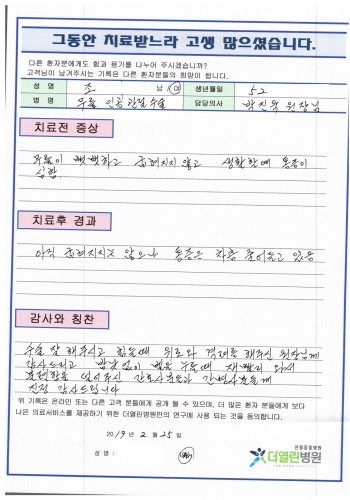 그동안 치료받느라 고생 많으셨습니다.
다른 환자분에게도 힘과 용기를 나누어 주시겠습니까?
고객님이 남겨주시는 기록은 다른 환자분들의 희망이 됩니다.
성 명 조 남 / 여 생년월일 52
병 명 무릎 인공관절수술 담당의사 박진욱 원장님
치료전 증상
무릎이 뻣뻣하고 굽혀지지 않고 생활할때 통증이
심함.
치료후 경과
아직 굽혀지지는 않으나 통증은 차츰 줄어들고 있음
감사와 칭찬
수술 잘 해주시고 힘들때 위로와 격려를 해주신 원장님께
감사드리고 밤낮없이 벨을 누를때 재빨리 와서
불편함을 덜어주신 간호사분들과 간병사분들께
진정 감사드립니다
위 기록은 온라인 또는 다른 고객 분들에게 공개 될 수 있으며, 더 많은 환자 분들에게 보다
나은 의료서비스를 제공하기 위한 더열린병원만의 연구에 사용 되는 것을 동의합니다.
2019년 2월 25일
성 명 :
관절중점병원
더열린병원